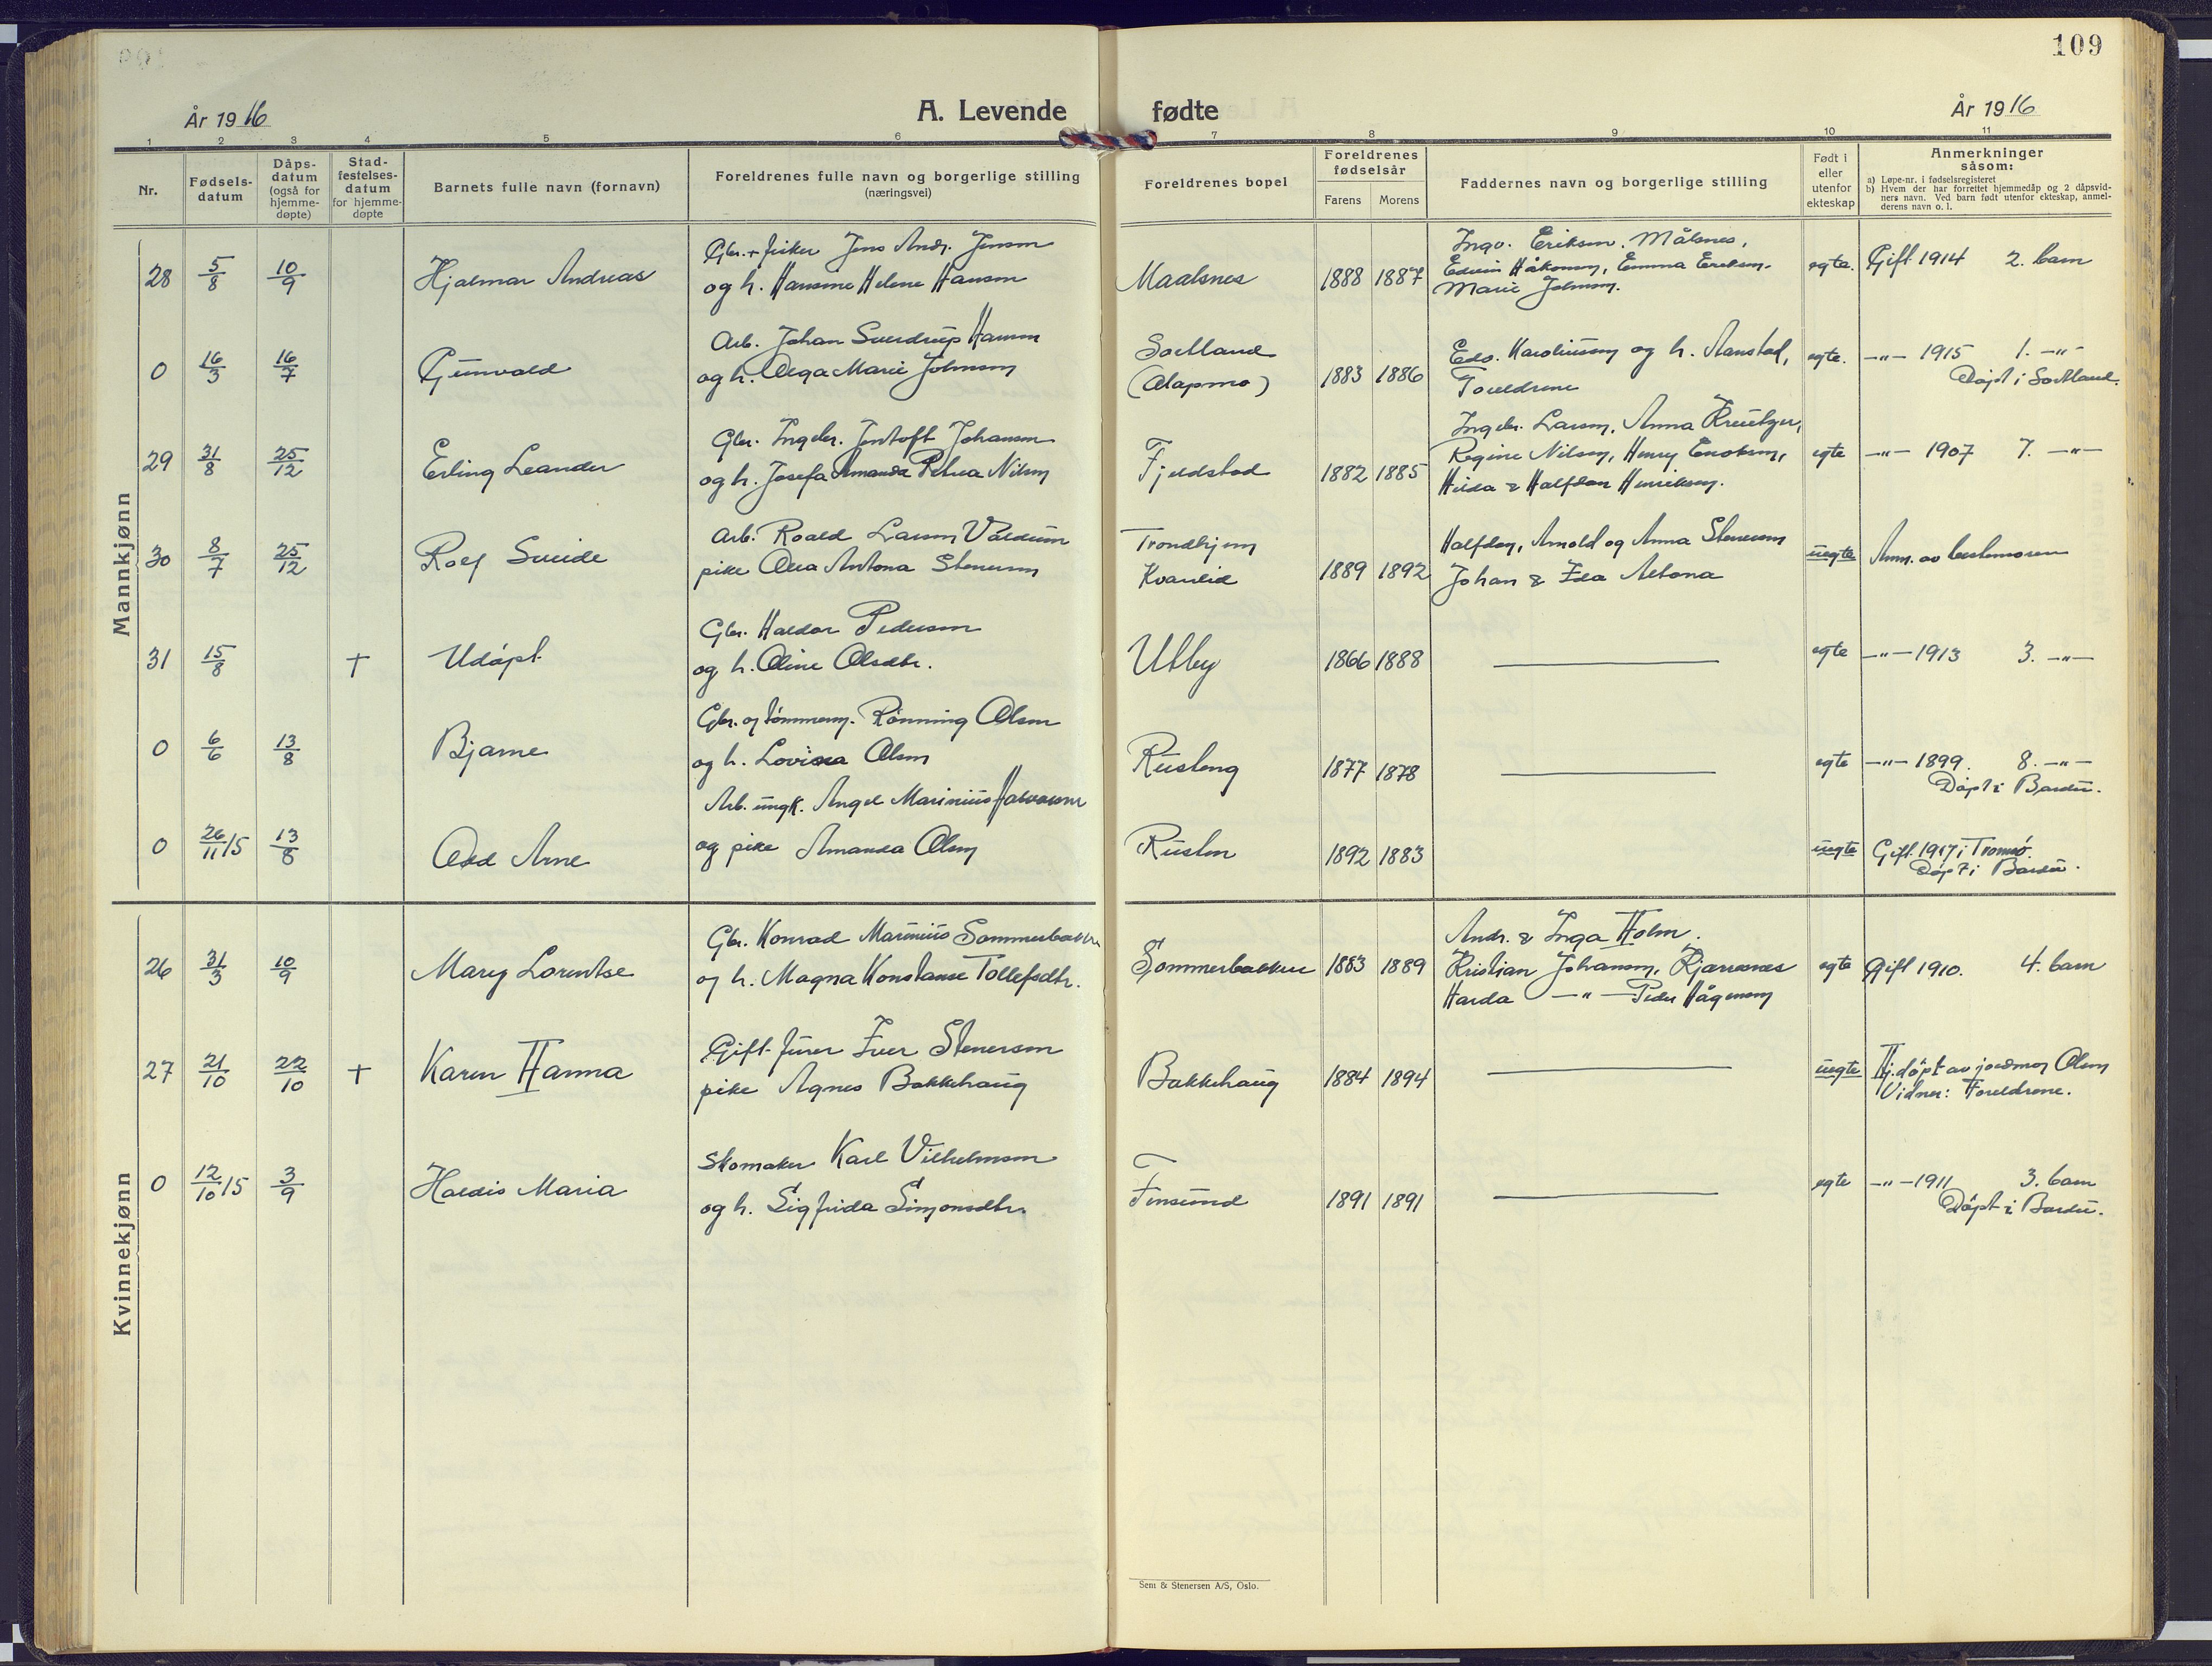 109
År 1916 A. Levende fødte År 1916
1 2 3 4 5 6 7 8 9 10 11
Nr.
Fødsels-
datum
Dåps-
datum
(også for
hjemme-
døpte)
Stad-
festelses-
datum
for hjemme-
døpte
Barnets fulle navn (fornavn)
Foreldrenes fulle navn og borgerlige stilling
(næringsvei)
Foreldrenes bopel
Foreldrenes
fødselsår
Farens Morens
Faddernes navn og borgerlige stilling
Født i
eller
utenfor
ekteskap
Anmerkninger
såsom:
a) Løpe-nr. i fødselsregisteret
b) Hvem der har forrettet hjemmedåp og 2 dåpsvid-
ners navn. Ved barn født utenfor ekteskap, anmel-
derens navn o. l.
Mannkjønn
28 5/8 10/9 Hjalmar Andreas
Gbr. + fisker Jens Andr. Jensen
og h. Hansine Helene Hansen
Maalsnes 1888 1887
Ingv. Eriksen, Målsnes,
Edvin Håkonsen, Emma Eriksen.
Marie Johnsen.
egte. Gift 1914 2. barn
0 16/3 16/7 Gunvald
Arb. Johan Sverdrup Hansen
og h. Olga Marie Johnsen
Sortland
(Olapmo) 1883 1886
Edv. Karoliussen og h. Aanstad,
Foreldrene
egte. —"— 1915 1. —"—
Døpt i Sortland.
29 31/8 25/12 Erling Leander
Gbr. Ingebr. Jentoft Johansen
og h. Josefa Amanda Petrea Nilsen
Fjeldstad 1882 1885
Ingebr. Larsen, Anna Kreutzer,
Regine Nilsen, Henry Enoksen,
Hilda & Halfdan Henriksen.
egte —"— 1907 7. —"—
30 8/7 25/12 Rolf Sneide
Arb. Roald Larsen Valdum
pike Olea Antona Stenersen
Trondhjem
Kvanlid 1889 1892
Halfdan, Arnold og Anna Stenersen
Johan & Eda Aetona
uegte Anm. av bestemoren
31 15/8 + Udøpt
Gbr. Haldor Pedersen
og h. Oline Olsdtr.
Utby 1866 1888 —
egte —"— 1913 3. —"—
0 6/6 13/8 Bjarne
Gbr. og tømmerm. Rønning Olsen
og h. Lovisea Olsen
Rusteng 1877 1878 —
egte —"— 1899. 8. —"—
Døpt i Bardu.
0 26/11 15 13/8 Odd Arne
Arb. ungk. Angel Marinius Halvorsen
og pike Amanda Olsen
Rusten 1892 1883
uegte Gift 1917 i Tromsø.
Døpt i Bardu.
Kvinnekjønn
26 31/3 10/9 Mary Lorentse
Gbr. Konrad Marinius Sommerbakken
og h. Magna Konstanse Tollefsdtr.
Sommerbakken 1883 1889
Andr. & Inga Holm.
Kristian Johansen, Kjærresnes
Harda —"— Peder Hågensen
egte Gift 1910. 4. barn
27 21/10 22/10 + Karen Hanna
Gift furer Iver Stenersen
pike Agnes Bakkehaug
Bakkehaug 1884 1894 —
uegte Hj.døpt av jordmor Olsen
Vidner: Foreldrene.
0 12/10 15 3/9 Haldis Maria
Skomaker Karl Vilhelmsen
og h. Sigfrida Simonsdtr.
Finsund 1891 1891 —
egte —"— 1911 3. barn
Døpt i Bardu.
Sem & Stenersen A/S, Oslo.